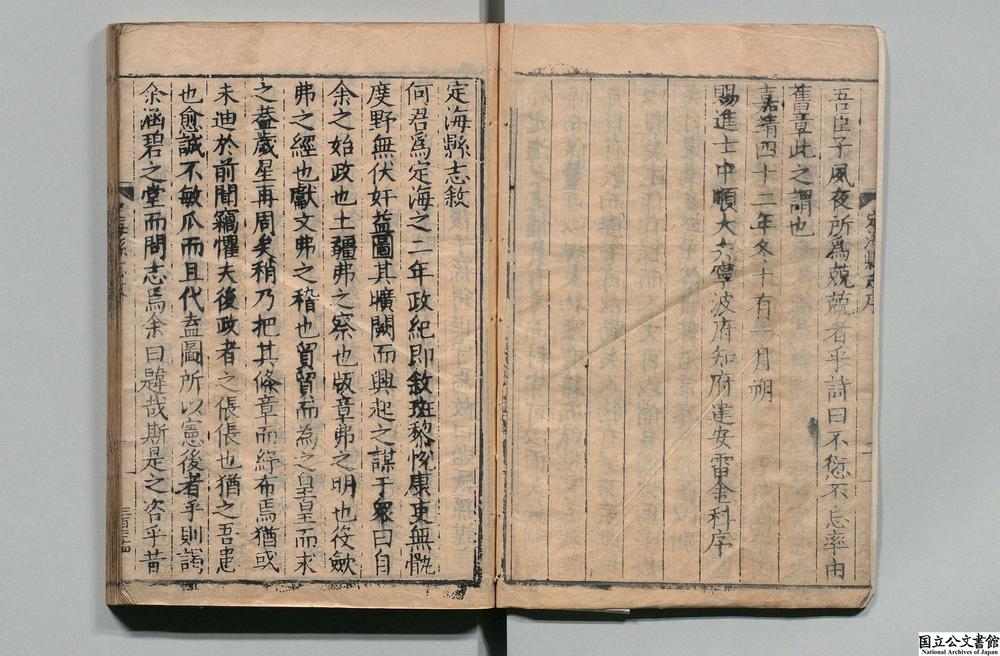 吾臣子夙夜所為兢兢者乎詩曰不愆不忘率由
舊章此之謂也
嘉靖四十二年冬十有一月朔
賜進士中順大夫寧波府知府建安雷金科序
定海縣志敘
何君爲定海之二年政紀即敘斑黎悅康吏無骫
度野無伏奸益圖其曠闕而興起之謀于衆曰自
余之始政也土疆弗之察也版章弗之明也伎歛
弗之經也獻文弗之稽也貿貿而為之皇皇而求
之蓋歲星再周矣稍乃把其條章而紓布焉猶或
未迪於前聞竊懼夫後政者之倀倀也猶之吾建
也愈誠不敏瓜而且代盍圖所以憲後者乎則謁
余涵碧之堂而問志焉余曰韙哉斯是之咨乎昔
国立公文書館
National Archives of Japan